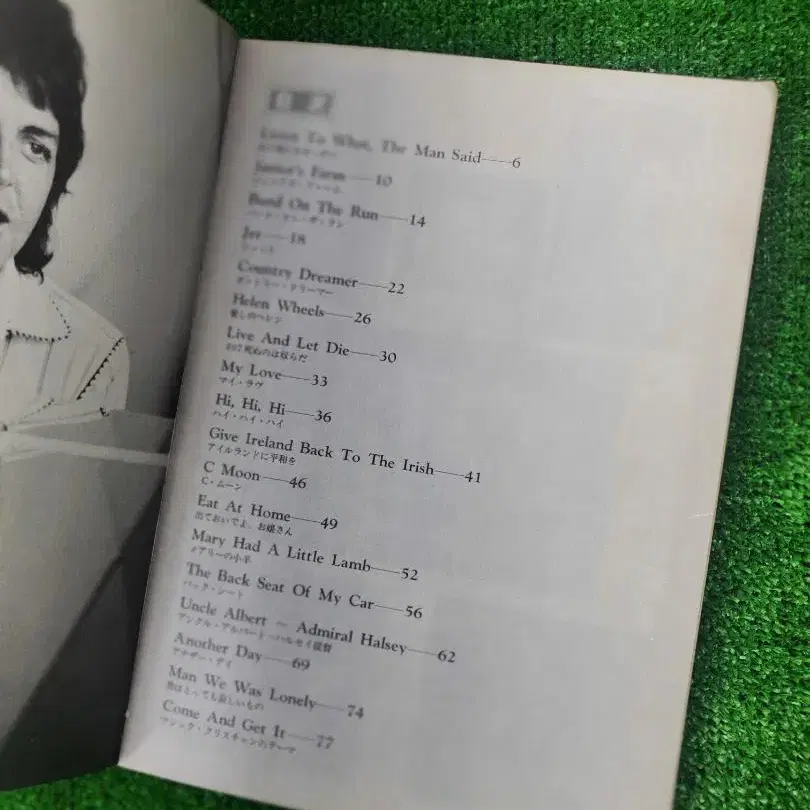 Listen To What, The Man Said——6
Junior's Farm——10
ジュニアズ・ファーム
Band On The Run——14
バンド・オン・ザ・ラン
Jet——18
ジェット
Country Dreamer——22
カントリー・ドリーマー
Helen Wheels——26
愛しのヘレン
Live And Let Die——30
007死ぬのは奴らだ
My Love——33
マイ・ラヴ
Hi, Hi, Hi——36
ハイ・ハイ・ハイ
Give Ireland Back To The Irish——41
アイルランドに平和を
C Moon——46
C・ムーン
Eat At Home——49
出ておいでよ、お嬢さん
Mary Had A Little Lamb——52
メアリーの小羊
The Back Seat Of My Car——56
バック・シート
Uncle Albert ~ Admiral Halsey——62
アンクル・アルバート~ハルセイ提督
Another Day——69
アナザー・デイ
Man We Was Lonely——74
男はとっても寂しいもの
Come And Get It——77
マジック・クリスチャンのテーマ